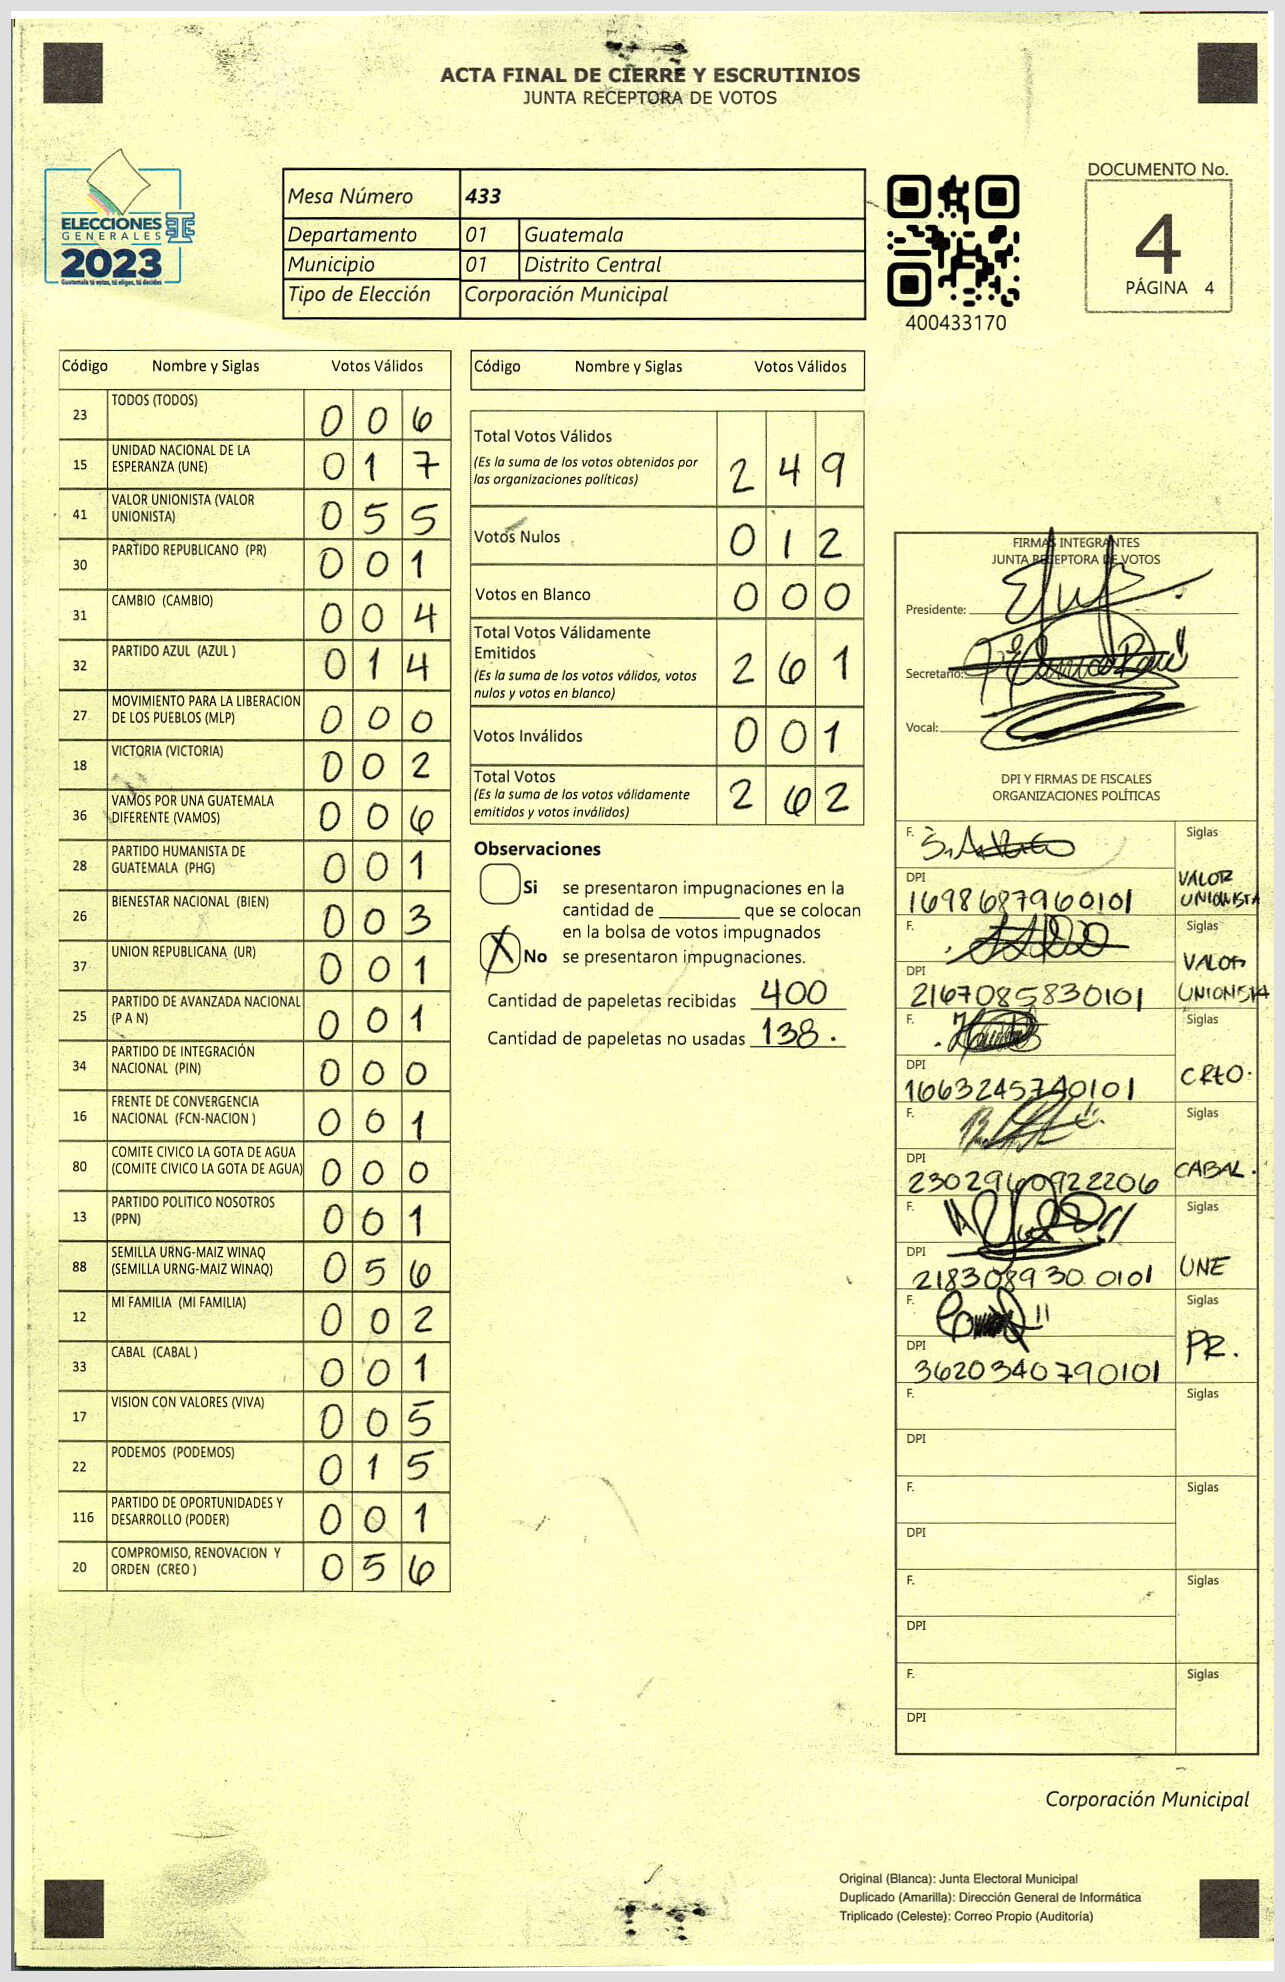 ACTA FINAL DE CIERRE Y ESCRUTINIOS
JUNTA RECEPTORA DE VOTOS
ELECCIONES
GENERALES
2023
Guatemala tú votas, tú eliges, tú decides
Mesa Número 433
Departamento 01 Guatemala
Municipio 01 Distrito Central
Tipo de Elección Corporación Municipal
400433170
DOCUMENTO No.
4
PÁGINA 4
Código Nombre y Siglas Votos Válidos
23 TODOS (TODOS) 0 0 6
15 UNIDAD NACIONAL DE LA ESPERANZA (UNE) 0 1 7
41 VALOR UNIONISTA (VALOR UNIONISTA) 0 5 5
30 PARTIDO REPUBLICANO (PR) 0 0 1
31 CAMBIO (CAMBIO) 0 0 4
32 PARTIDO AZUL (AZUL ) 0 1 4
27 MOVIMIENTO PARA LA LIBERACION DE LOS PUEBLOS (MLP) 0 0 0
18 VICTORIA (VICTORIA) 0 0 2
36 VAMOS POR UNA GUATEMALA DIFERENTE (VAMOS) 0 0 6
28 PARTIDO HUMANISTA DE GUATEMALA (PHG) 0 0 1
26 BIENESTAR NACIONAL (BIEN) 0 0 3
37 UNION REPUBLICANA (UR) 0 0 1
25 PARTIDO DE AVANZADA NACIONAL (P A N) 0 0 1
34 PARTIDO DE INTEGRACIÓN NACIONAL (PIN) 0 0 0
16 FRENTE DE CONVERGENCIA NACIONAL (FCN-NACION ) 0 0 1
80 COMITE CIVICO LA GOTA DE AGUA (COMITE CIVICO LA GOTA DE AGUA) 0 0 0
13 PARTIDO POLITICO NOSOTROS (PPN) 0 0 1
88 SEMILLA URNG-MAIZ WINAQ (SEMILLA URNG-MAIZ WINAQ) 0 5 6
12 MI FAMILIA (MI FAMILIA) 0 0 2
33 CABAL (CABAL ) 0 0 1
17 VISION CON VALORES (VIVA) 0 0 5
22 PODEMOS (PODEMOS) 0 1 5
116 PARTIDO DE OPORTUNIDADES Y DESARROLLO (PODER) 0 0 1
20 COMPROMISO, RENOVACION Y ORDEN (CREO ) 0 5 6
Código Nombre y Siglas Votos Válidos
Total Votos Válidos 2 4 9
(Es la suma de los votos obtenidos por
las organizaciones políticas)
Votos Nulos 0 1 2
Votos en Blanco 0 0 0
Total Votos Válidamente
Emitidos 2 6 1
(Es la suma de los votos válidos, votos
nulos y votos en blanco)
Votos Inválidos 0 0 1
Total Votos 2 6 2
(Es la suma de los votos válidamente
emitidos y votos inválidos)
Observaciones
Si se presentaron impugnaciones en la
cantidad de ________ que se colocan
en la bolsa de votos impugnados
X No se presentaron impugnaciones.
Cantidad de papeletas recibidas 400
Cantidad de papeletas no usadas 138.
FIRMAS INTEGRANTES
JUNTA RECEPTORA DE VOTOS
Presidente:
Secretario:
Vocal:
DPI Y FIRMAS DE FISCALES
ORGANIZACIONES POLÍTICAS
F. Siglas
DPI 1698687960101 VALOR UNIONISTA
F. Siglas
DPI 2167085830101 VALOR UNIONISTA
F. Siglas
DPI 1663245740101 CREO.
F. Siglas
DPI 2302960922206 CABAL.
F. Siglas
DPI 2183089300101 UNE
F. Siglas
DPI 3620340790101 PR.
F. Siglas
DPI
F. Siglas
DPI
F. Siglas
DPI
F. Siglas
DPI
Corporación Municipal
Original (Blanca): Junta Electoral Municipal
Duplicado (Amarilla): Dirección General de Informática
Triplicado (Celeste): Correo Propio (Auditoría)